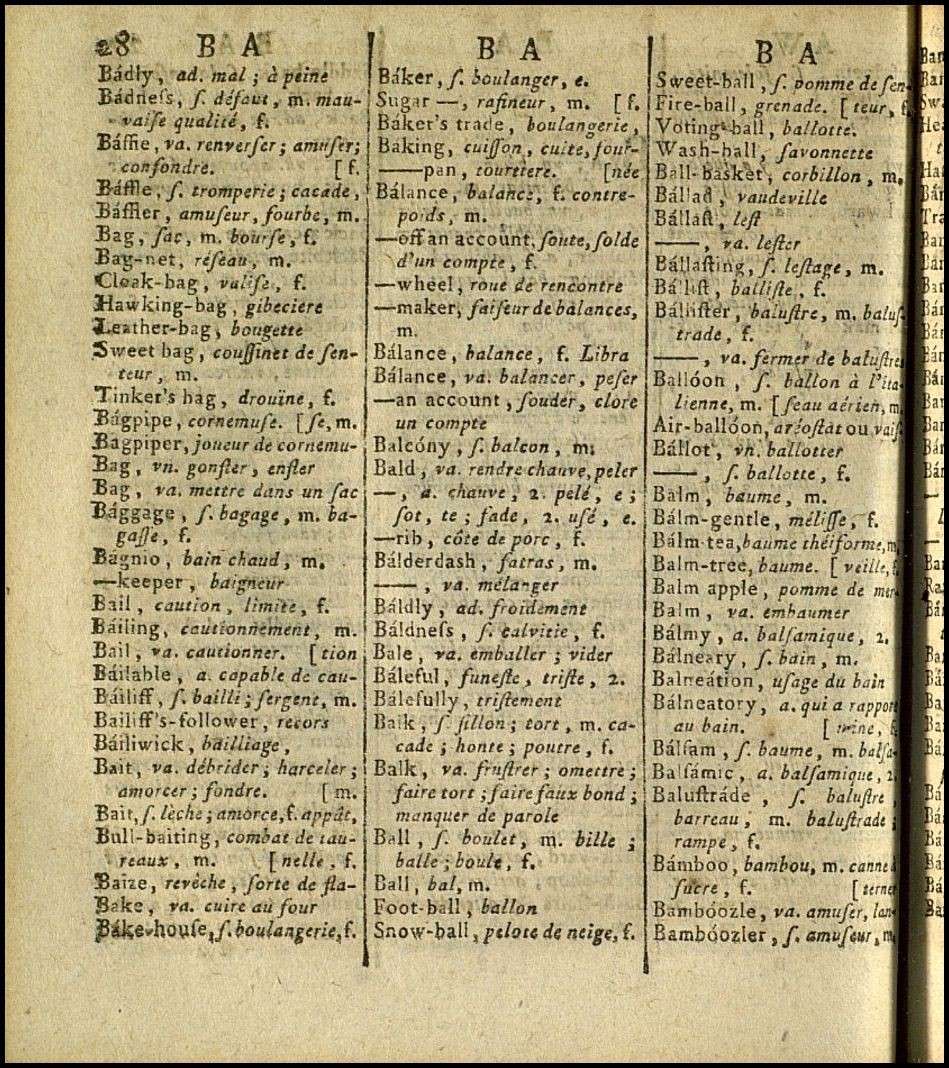 28 B A
Bádly, ad. mal; à peine
Bádneſs, ſ. défaut, m. mau-
vaiſe qualité, f.
Báffle, va. renverſer; amuſer;
confondre. [f.
Báffle, ſ. tromperie; cacade,
Báffler, amuſeur, fourbe, m.
Bag, ſac, m. bourſe, f.
Bag-net, réſeau, m.
Cloak-bag, valiſe, f.
Hawking-bag, gibeciere
Leather-bag, bougette
Sweet bag, couſſinet de ſen-
teur, m.
Tinker's bag, drouïne, f.
Bágpipe, cornemuſe. [ſe, m.
Bagpiper, joueur de cornemu-
Bag, vn. gonfler, enfler
Bag, va. mettre dans un ſac
Bággage, ſ. bagage, m. ba-
gaſſe, f.
Bágnio, bain chaud, m.
—keeper, baigneur
Bail, caution, limite, f.
Báiling, cautionnement, m.
Bail, va. cautionner. [tion
Báilable, a. capable de cau-
Báiliff, ſ. bailli; ſergent, m.
Bailiff's-follower, recors
Báiliwick, bailliage,
Bait, va. débrider; harceler;
amorcer; fondre. [m.
Bait, ſ. lèche; amorce, f. appât,
Bull-baiting, combat de tau-
reaux, m. [nelle, f.
Baize, revêche, ſorte de fla-
Bake, va. cuire au four
Báke-houſe, ſ. boulangerie, f.
B A
Báker, ſ. boulanger, e.
Sugar —, rafineur, m. [f.
Báker's trade, boulangerie,
Báking, cuiſſon, cuite, four-
——pan, tourtiere. [née
Bálance, balance, f. contre-
poids, m.
—off an account, ſoute, ſolde
d'un compte, f.
—wheel, roue de rencontre
—maker, faiſeur de balances,
m.
Bálance, balance, f. Libra
Bálance, va. balancer, peſer
—an account, ſouder, clore
un compte
Balcóny, ſ. balcon, m.
Bald, va. rendre chauve, peler
—, a. chauve, 2. pelé, e;
ſot, te; fade, 2. uſé, e.
—rib, côte de porc, f.
Bálderdash, fatras, m.
——, va. mélanger
Báldly, ad. froidement
Báldneſs, ſ. calvitie, f.
Bale, va. emballer; vider
Báleful, funeſte, triſte, 2.
Bálefully, triſtement
Balk, ſ. ſillon; tort, m. ca-
cade; honte; poutre, f.
Balk, va. fruſtrer; omettre;
faire tort; faire faux bond;
manquer de parole
Ball, ſ. boulet, m. bille;
balle; boule, f.
Ball, bal, m.
Foot-ball, ballon
Snow-ball, pelote de neige, f.
B A
Sweet-ball, ſ. pomme de ſen-
Fire-ball, grenade. [teur, f.
Voting-ball, ballotte.
Wash-ball, ſavonnette
Ball-basket, corbillon, m.
Bállad, vaudeville
Bállaſt, leſt
——, va. leſter
Bállaſting, ſ. leſtage, m.
Bálliſt, balliſte, f.
Bálliſter, baluſtre, m. baluſ-
trade, f.
——, va. fermer de baluſtres
Ballóon, ſ. ballon à l'ita-
lienne, m. [ſeau aérien, m.
Air-ballóon, aréoſtat ou vaiſ-
Bállot, vn. ballotter
——, ſ. ballotte, f.
Balm, baume, m.
Bálm-gentle, méliſſe, f.
Bálm-tea, baume théiforme, m.
Balm-tree, baume. [veille, f.
Balm apple, pomme de mer-
Balm, va. embaumer
Bálmy, a. balſamique, 2.
Bálneary, ſ. bain, m.
Balneátion, uſage du bain
Bálneatory, a. qui a rapport
au bain. [mine, f.
Bálſam, ſ. baume, m. balſa-
Balſámic, a. balſamique, 2.
Baluſtráde, ſ. baluſtre,
barreau, m. baluſtrade;
rampe, f.
Bámboo, bambou, m. canne à
ſucre, f. [terner
Bambóozle, va. amuſer, lan-
Bambóozler, ſ. amuſeur, m.